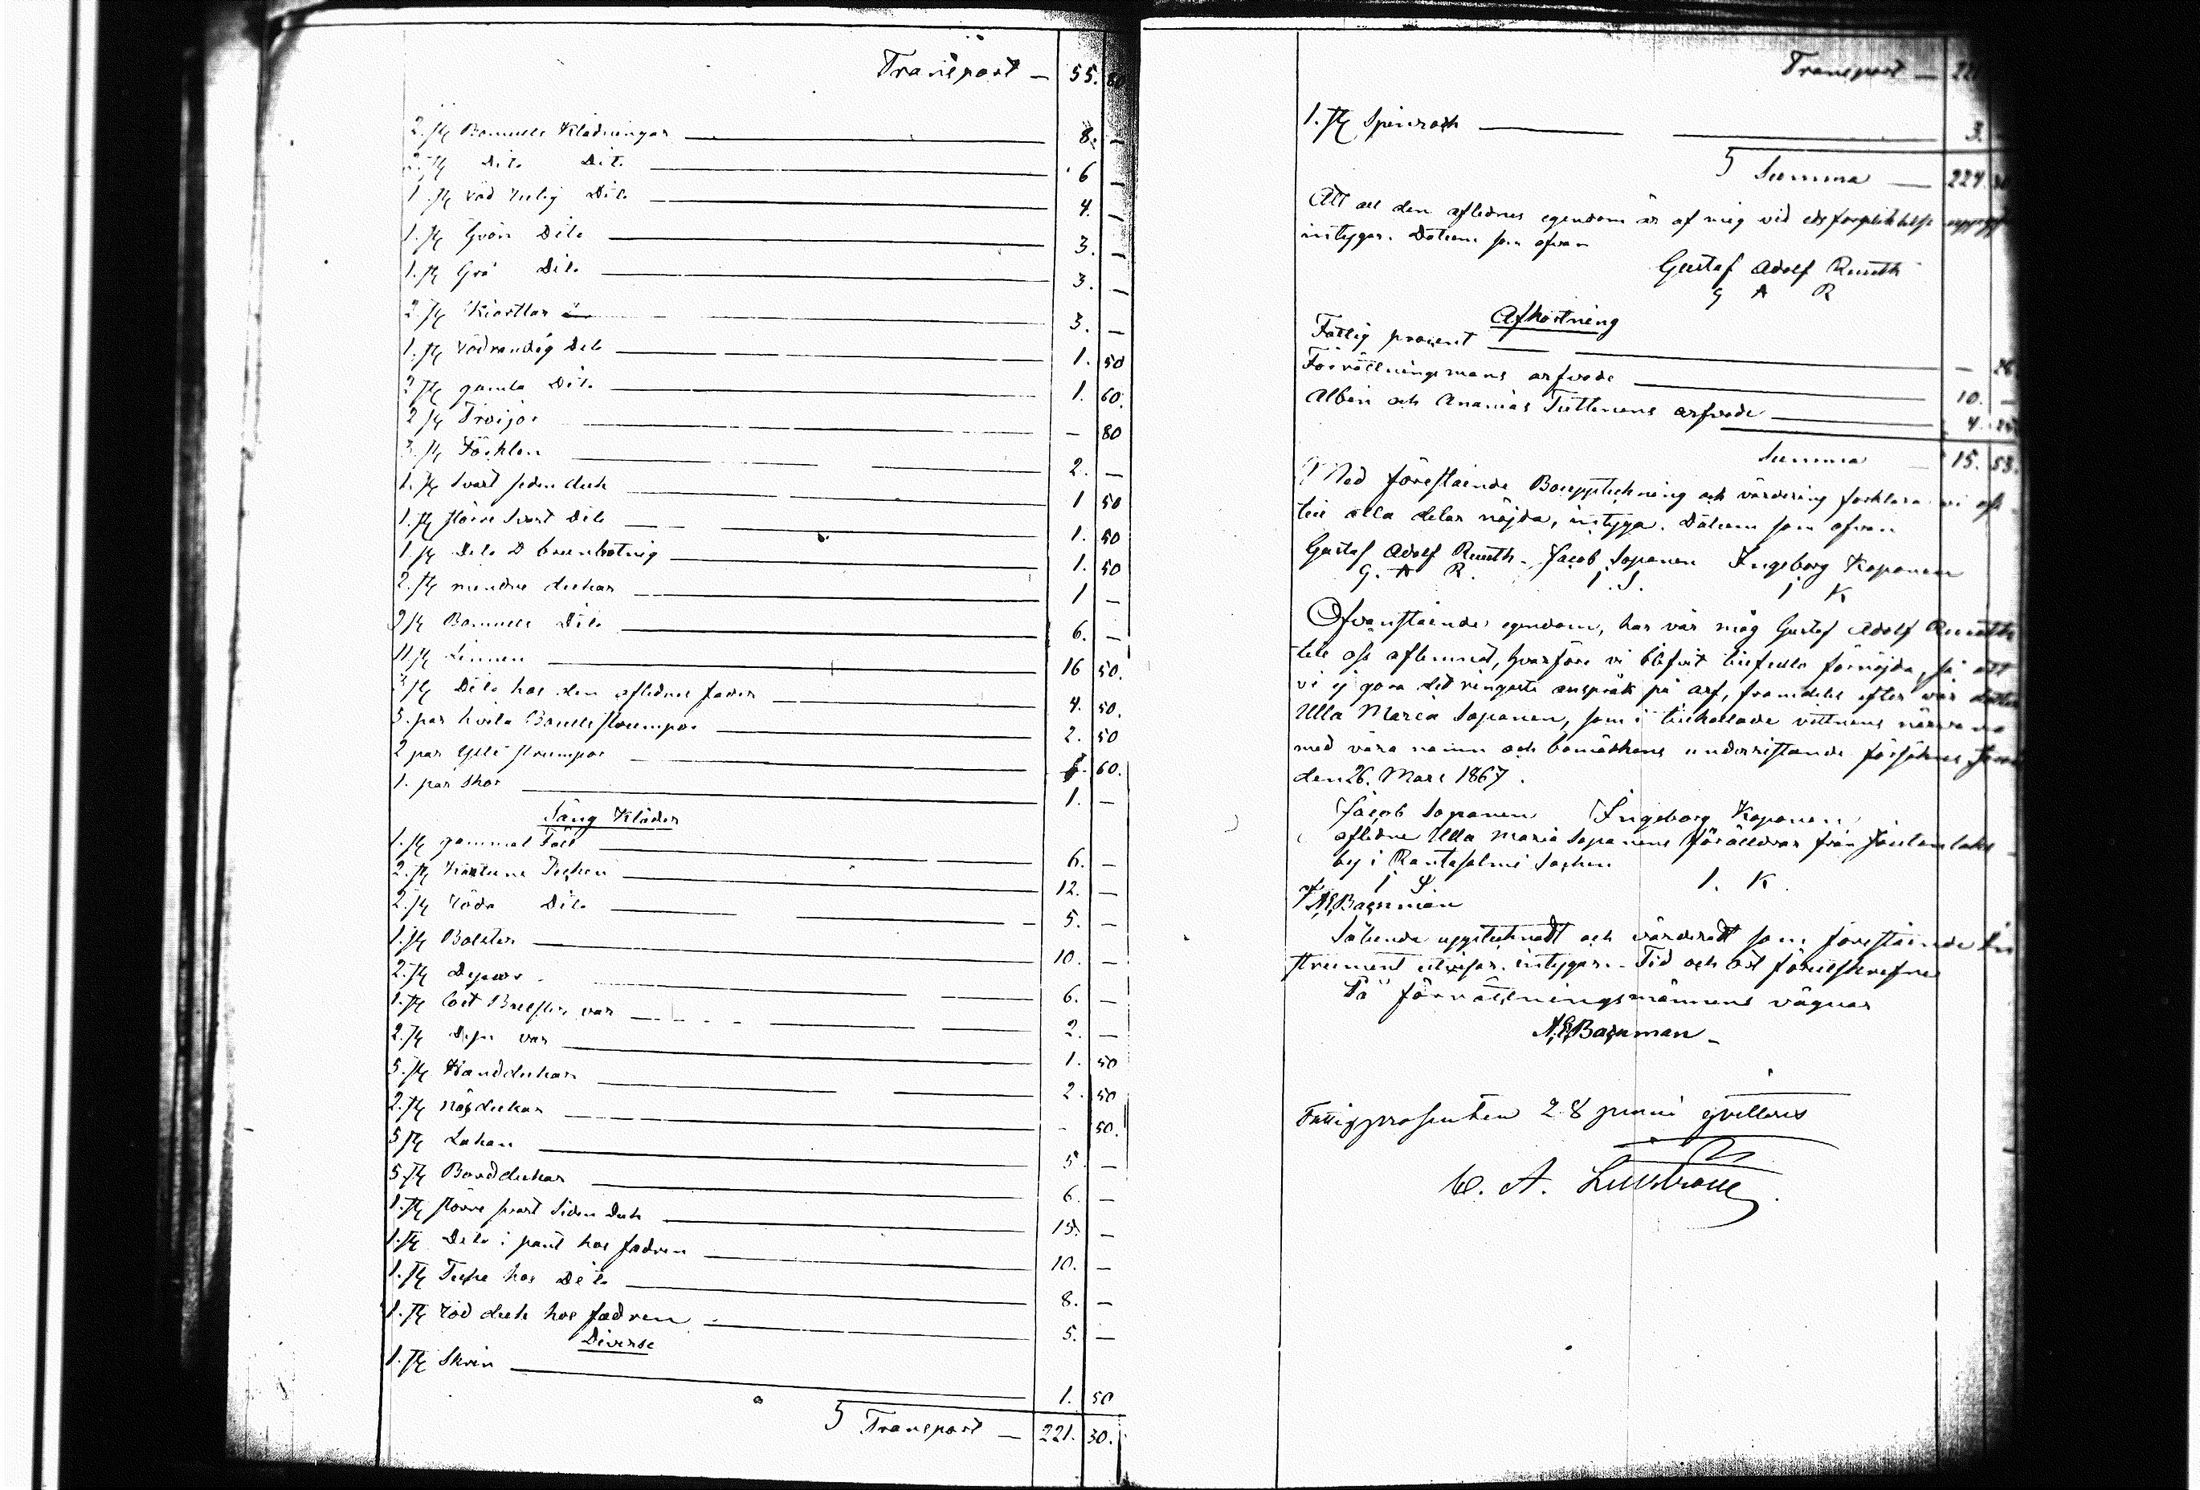 Transport — 55.
2. st Bomulls Klädningar — 8. —
2. st Dito Dito — 6 —
1. st röd Dito — 4. —
1. st Grön Dito — 3. —
1. st Grå Dito — 3. —
2. st Kiortlar — 3. —
1. st rödrandig Dito — 1. 50
2 st gamla Dito — 1. 60.
2 st Tröijor — — 80
3. st Förklen — 2. —
1. st Svart siden duk — 1 50
1. st större Svart Dito — 1. 50
1. st Dito D brunbotnig — 1. 50
2. st mindre dukar — 1 —
9 st Bomulls Dito — 6. —
11 st Linnen — 16 50.
3 st Dito hos den aflidnes fader — 4. 50.
5. par hvita Bomulls strumpor — 2. 50
2 par Ylle strumpor — 60.
1. par Skor — 1. —
Säng Kläder
1. st gammal Fäll — 6. —
2. st Täcken — 12. —
2. st röda Dito — 5. —
1. st Bolster — 10. —
2. st — 6. —
1. st var — 2. —
2. st var — 1. 50
5. st Handdukar — 2. 50
2. st näsdukar — - 50.
5 st Lakan — 5 —
5. st Borddukar — 6. —
1. st större svart Siden duk — 15. —
1. st Dito i pant hos fadren — 10. —
1. st hos Dito — 8. —
1. st röd duk hos fadren — 5. —
Diverse
1. st Skrin — 1. 50
Transport — 221. 30.
Transport — 221
1. st Spinrock — 3.
Summa — 224. 30
Att all den aflidnes egendom är af mig vid edsförpliktelse
intygar. Datum som ofvan
Gustaf Adolf Ruuth
G A R
Afkortning
Fattig procent — — 26
Förrättningsmans arfvode — 10. —
Albin och Ananias Tuttinens arfvode — 4. 25
Summa 15. 53.
Med förestående Bouppteckning och värdering förklara vi oss
till alla delar nöjda, intyga. Datum som ofvan
Gustaf Adolf Ruuth. Jacob Soponen Ingeborg Koponen
G. A R. I. S. I K
Ofvanstående egendom, har vår måg Gustaf Adolf Ruuth
till oss aflemnat, hvarföre vi blifvit tillfullo förnöjda, så att
vi ej göra det ringaste anspråk på arf, framdeles efter vår dotter
Ulla Maria Soponen, som i tillkallade vittnens närvaro
med våra namn och bomärkens undersittande försäkras
den 26. Mars 1867.
Jacob Soponen Ingeborg Koponen
aflidne Ulla Maria Soponens föräldrar från
by i Rantasalmi Socken
I S I. K.
Sålunda upptecknadt och värderadt som förestående In
strument utvisar. intygar. Tid och Ort förutskrefne
På förrättningsmännens vägnar
Fattigprosenten 28 juni qvitteras